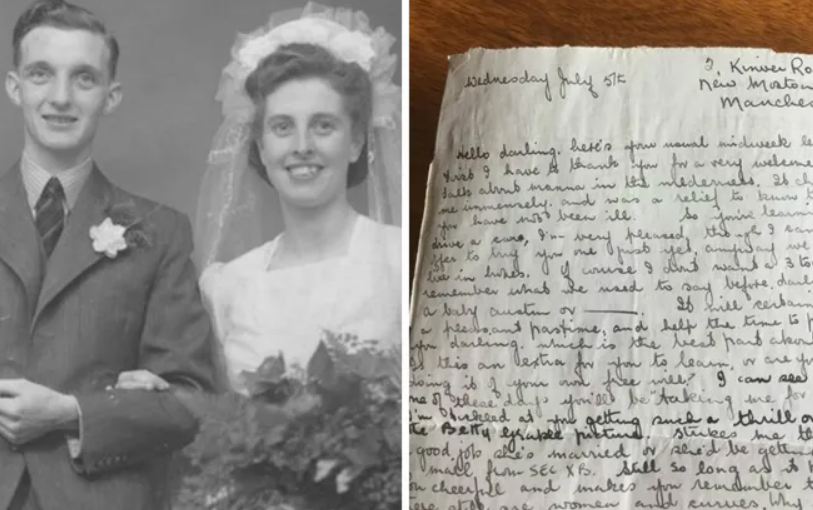 Wednesday July 5th
3, Kinver Ro
New Moston
Manches
Hello darling, here's your usual midweek le
First I have to thank you for a very welcome
talk about manna in the wilderness. It ch
me immensely, and was a relief to know t
you have not been ill. So you're learni
drive a car, I'm very pleased, though I can
offer to buy you one just yet, anyway we
live in hopes. Of course I don't want a 3 to
remember what we used to say before, darl
a baby austin or ——. It will certain
a pleasant pastime, and help the time to p
you darling, which is the best part about
Is this an extra for you to learn, or are yo
doing it of your own free will? I can see
one of these days you'll be "taking me for
I'm tickled at you getting such a thrill o
the Betty Grable picture. Strikes me th
good job she's married or she'd be gettin
mail from SEC XB. Still so long as it k
you cheerful and makes you remember t
there still are women and curves, why